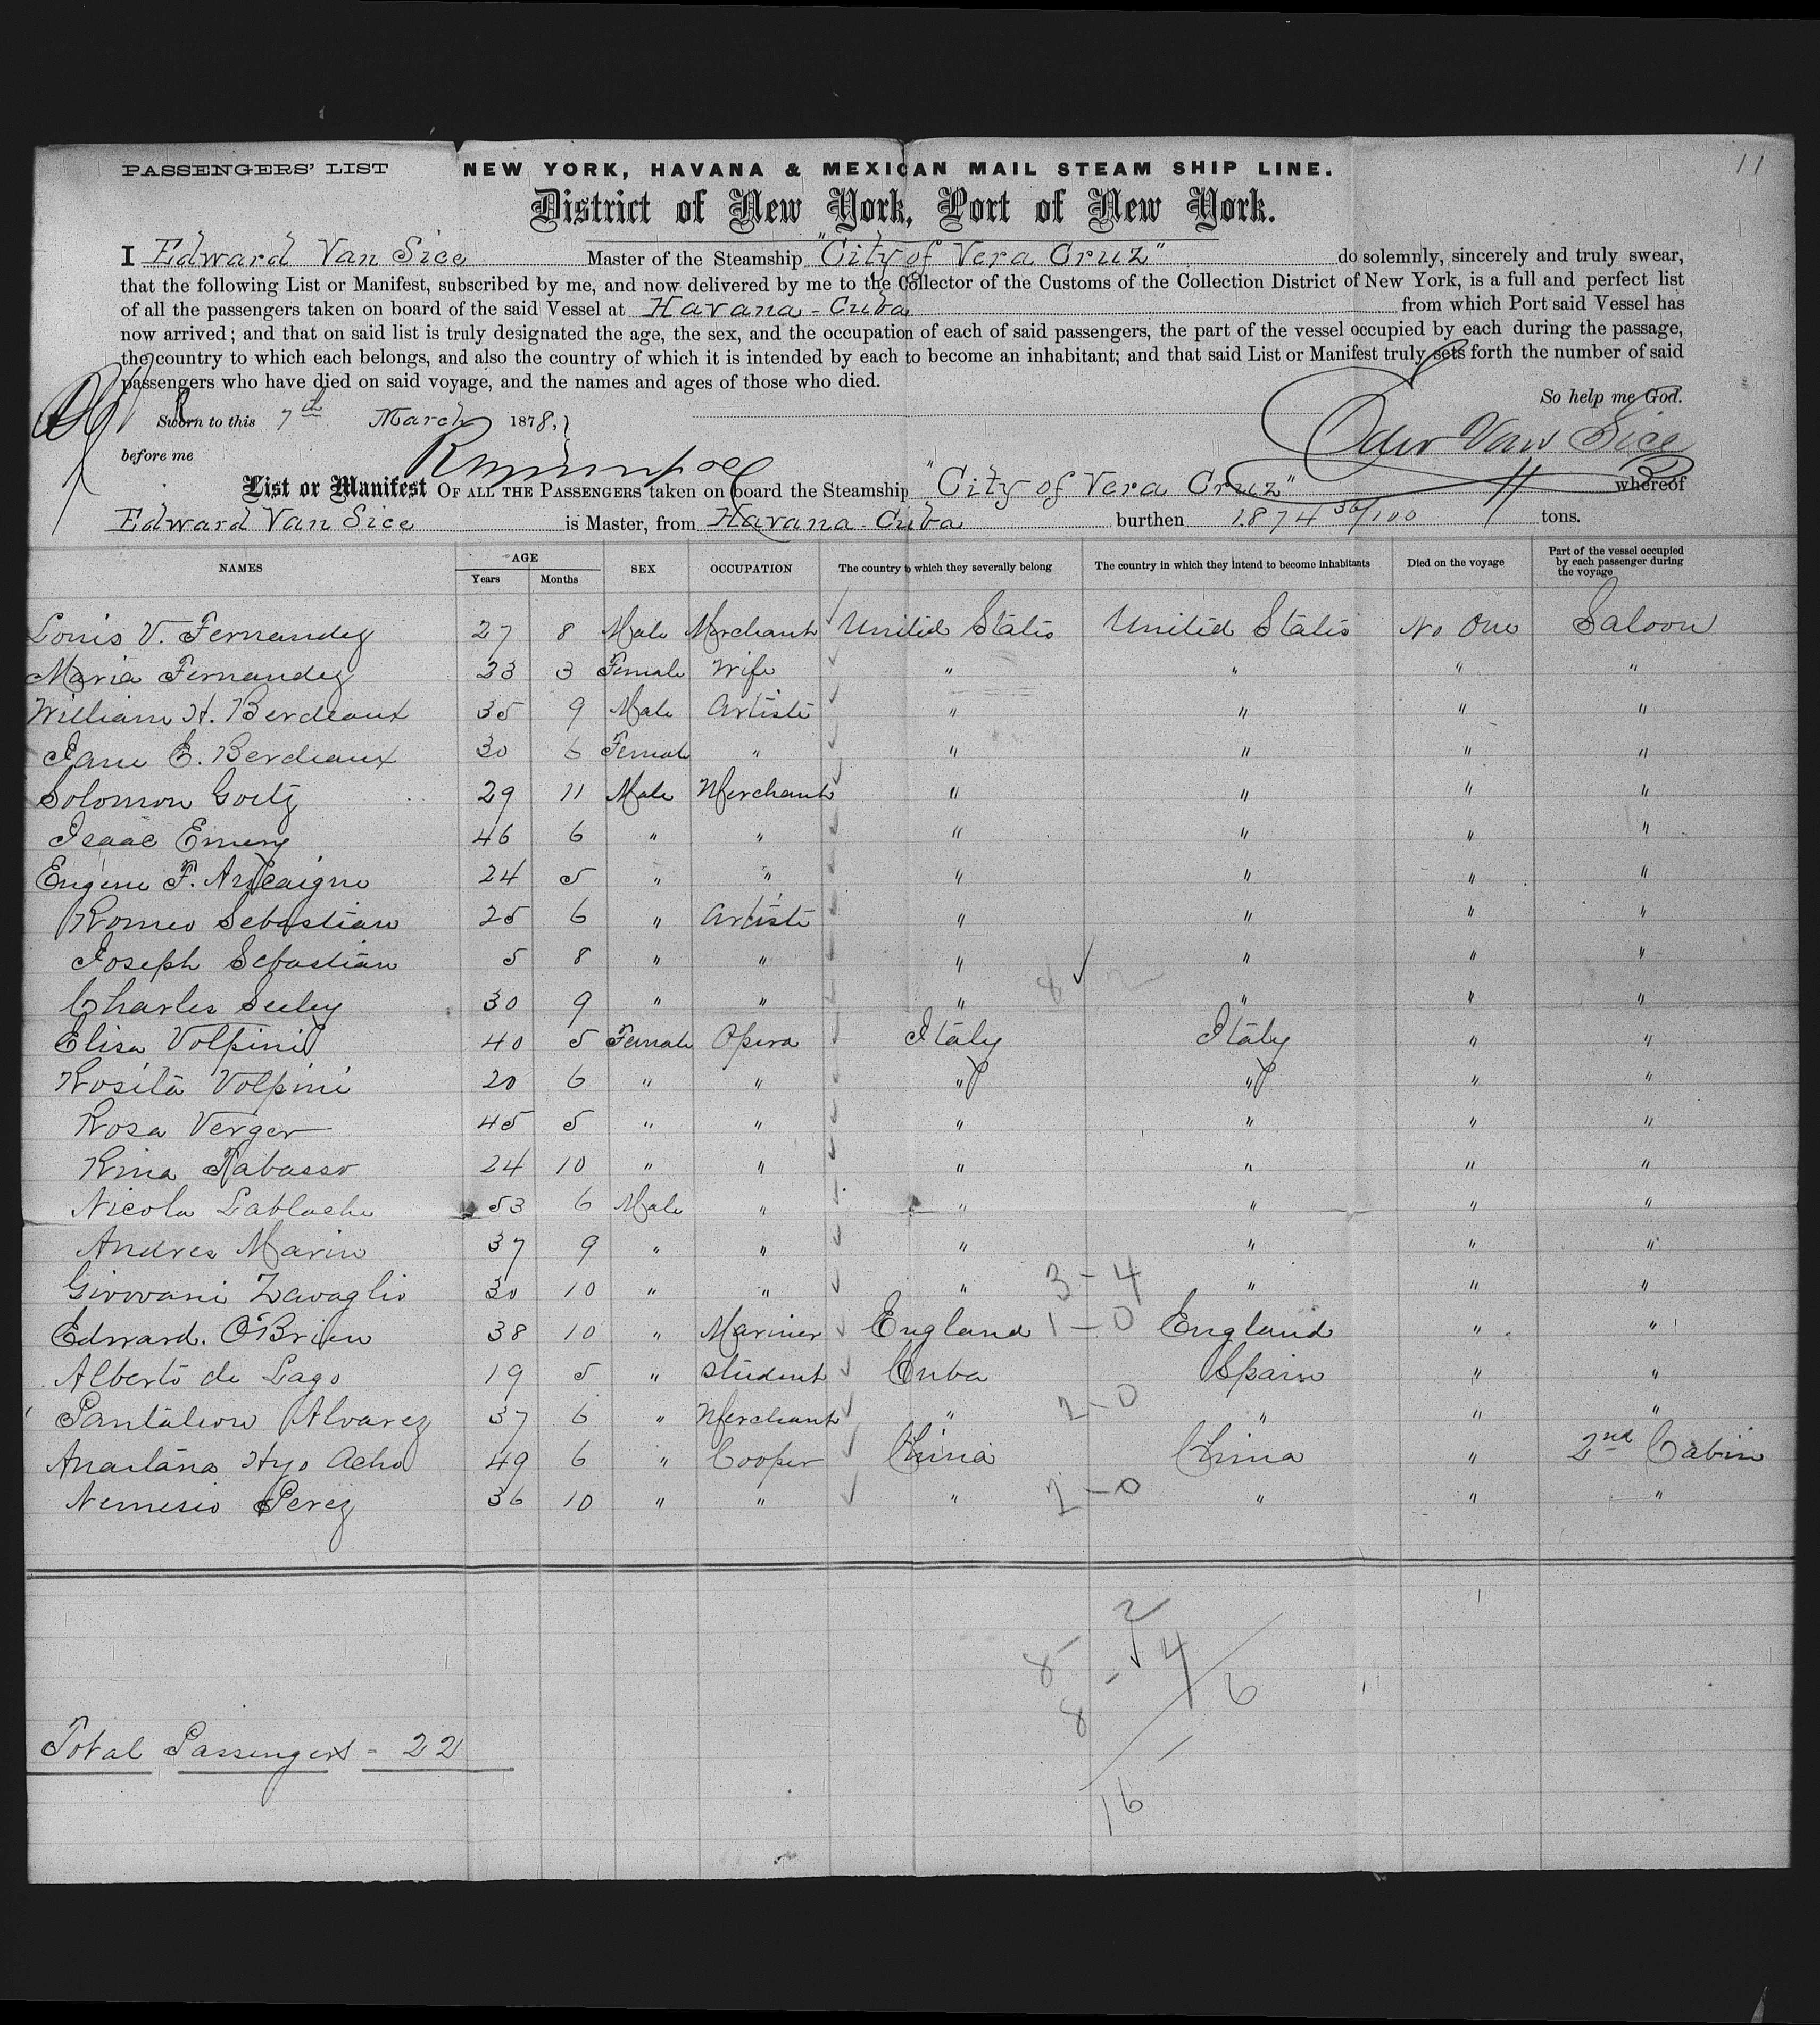 11
PASSENGERS' LIST NEW YORK, HAVANA & MEXICAN MAIL STEAM SHIP LINE.
District of New York, Port of New York.
I Edward Van Sice Master of the Steamship "City of Vera Cruz" do solemnly, sincerely and truly swear,
that the following List or Manifest, subscribed by me, and now delivered by me to the Collector of the Customs of the Collection District of New York, is a full and perfect list
of all the passengers taken on board of the said Vessel at Havana - Cuba from which Port said Vessel has
now arrived; and that on said list is truly designated the age, the sex, and the occupation of each of said passengers, the part of the vessel occupied by each during the passage,
the country to which each belongs, and also the country of which it is intended by each to become an inhabitant; and that said List or Manifest truly sets forth the number of said
passengers who have died on said voyage, and the names and ages of those who died.
So help me God.
Sworn to this 7th March 1878,
before me Van Sice
List or Manifest OF ALL THE PASSENGERS taken on board the Steamship "City of Vera Cruz" whereof
Edward Van Sice is Master, from Havana - Cuba burthen 1874 36/100 tons.
NAMES AGE Years Months SEX OCCUPATION The country to which they severally belong The country in which they intend to become inhabitants Died on the voyage Part of the vessel occupied by each passenger during the voyage
Louis V. Fernandez 27 8 Male Merchant United States United States No One Saloon
Maria Fernandez 23 3 Female Wife " " " "
William H. Berdeaux 35 9 Male Artiste " " " "
Jane E. Berdeaux 30 6 Female " " " " "
Solomon Goetz 29 11 Male Merchant " " " "
Isaac Emery 46 6 " " " " " "
Eugene F. 24 5 " " " " " "
Romeo Sebastian 25 6 " Artiste " " " "
Joseph Sebastian 5 8 " " " " " "
Charles Seeley 30 9 " " " " " "
Elisa Volpini 40 5 Female Opera Italy Italy " "
Rosita Volpini 20 6 " " " " " "
Rosa Verger 45 5 " " " " " "
Rina Tabasso 24 10 " " " " " "
Nicola Lablache 53 6 Male " " " " "
Andres Marin 37 9 " " " " " "
Giovvani Zavaglio 30 10 " " " 3-4 " " "
Edward. O'Brien 38 10 " Mariner England 1-0 England " "
Alberto de Lago 19 5 " Student Cuba Spain " "
Pantaleon Alvarez 37 6 " Merchant " 2-0 " " "
Hyo Acho 49 6 " Cooper China China " 2nd Cabin
Nemesio Perez 36 10 " " " 2-0 " " "
2
8 - 4
8 6
16
Total Passengers - 22